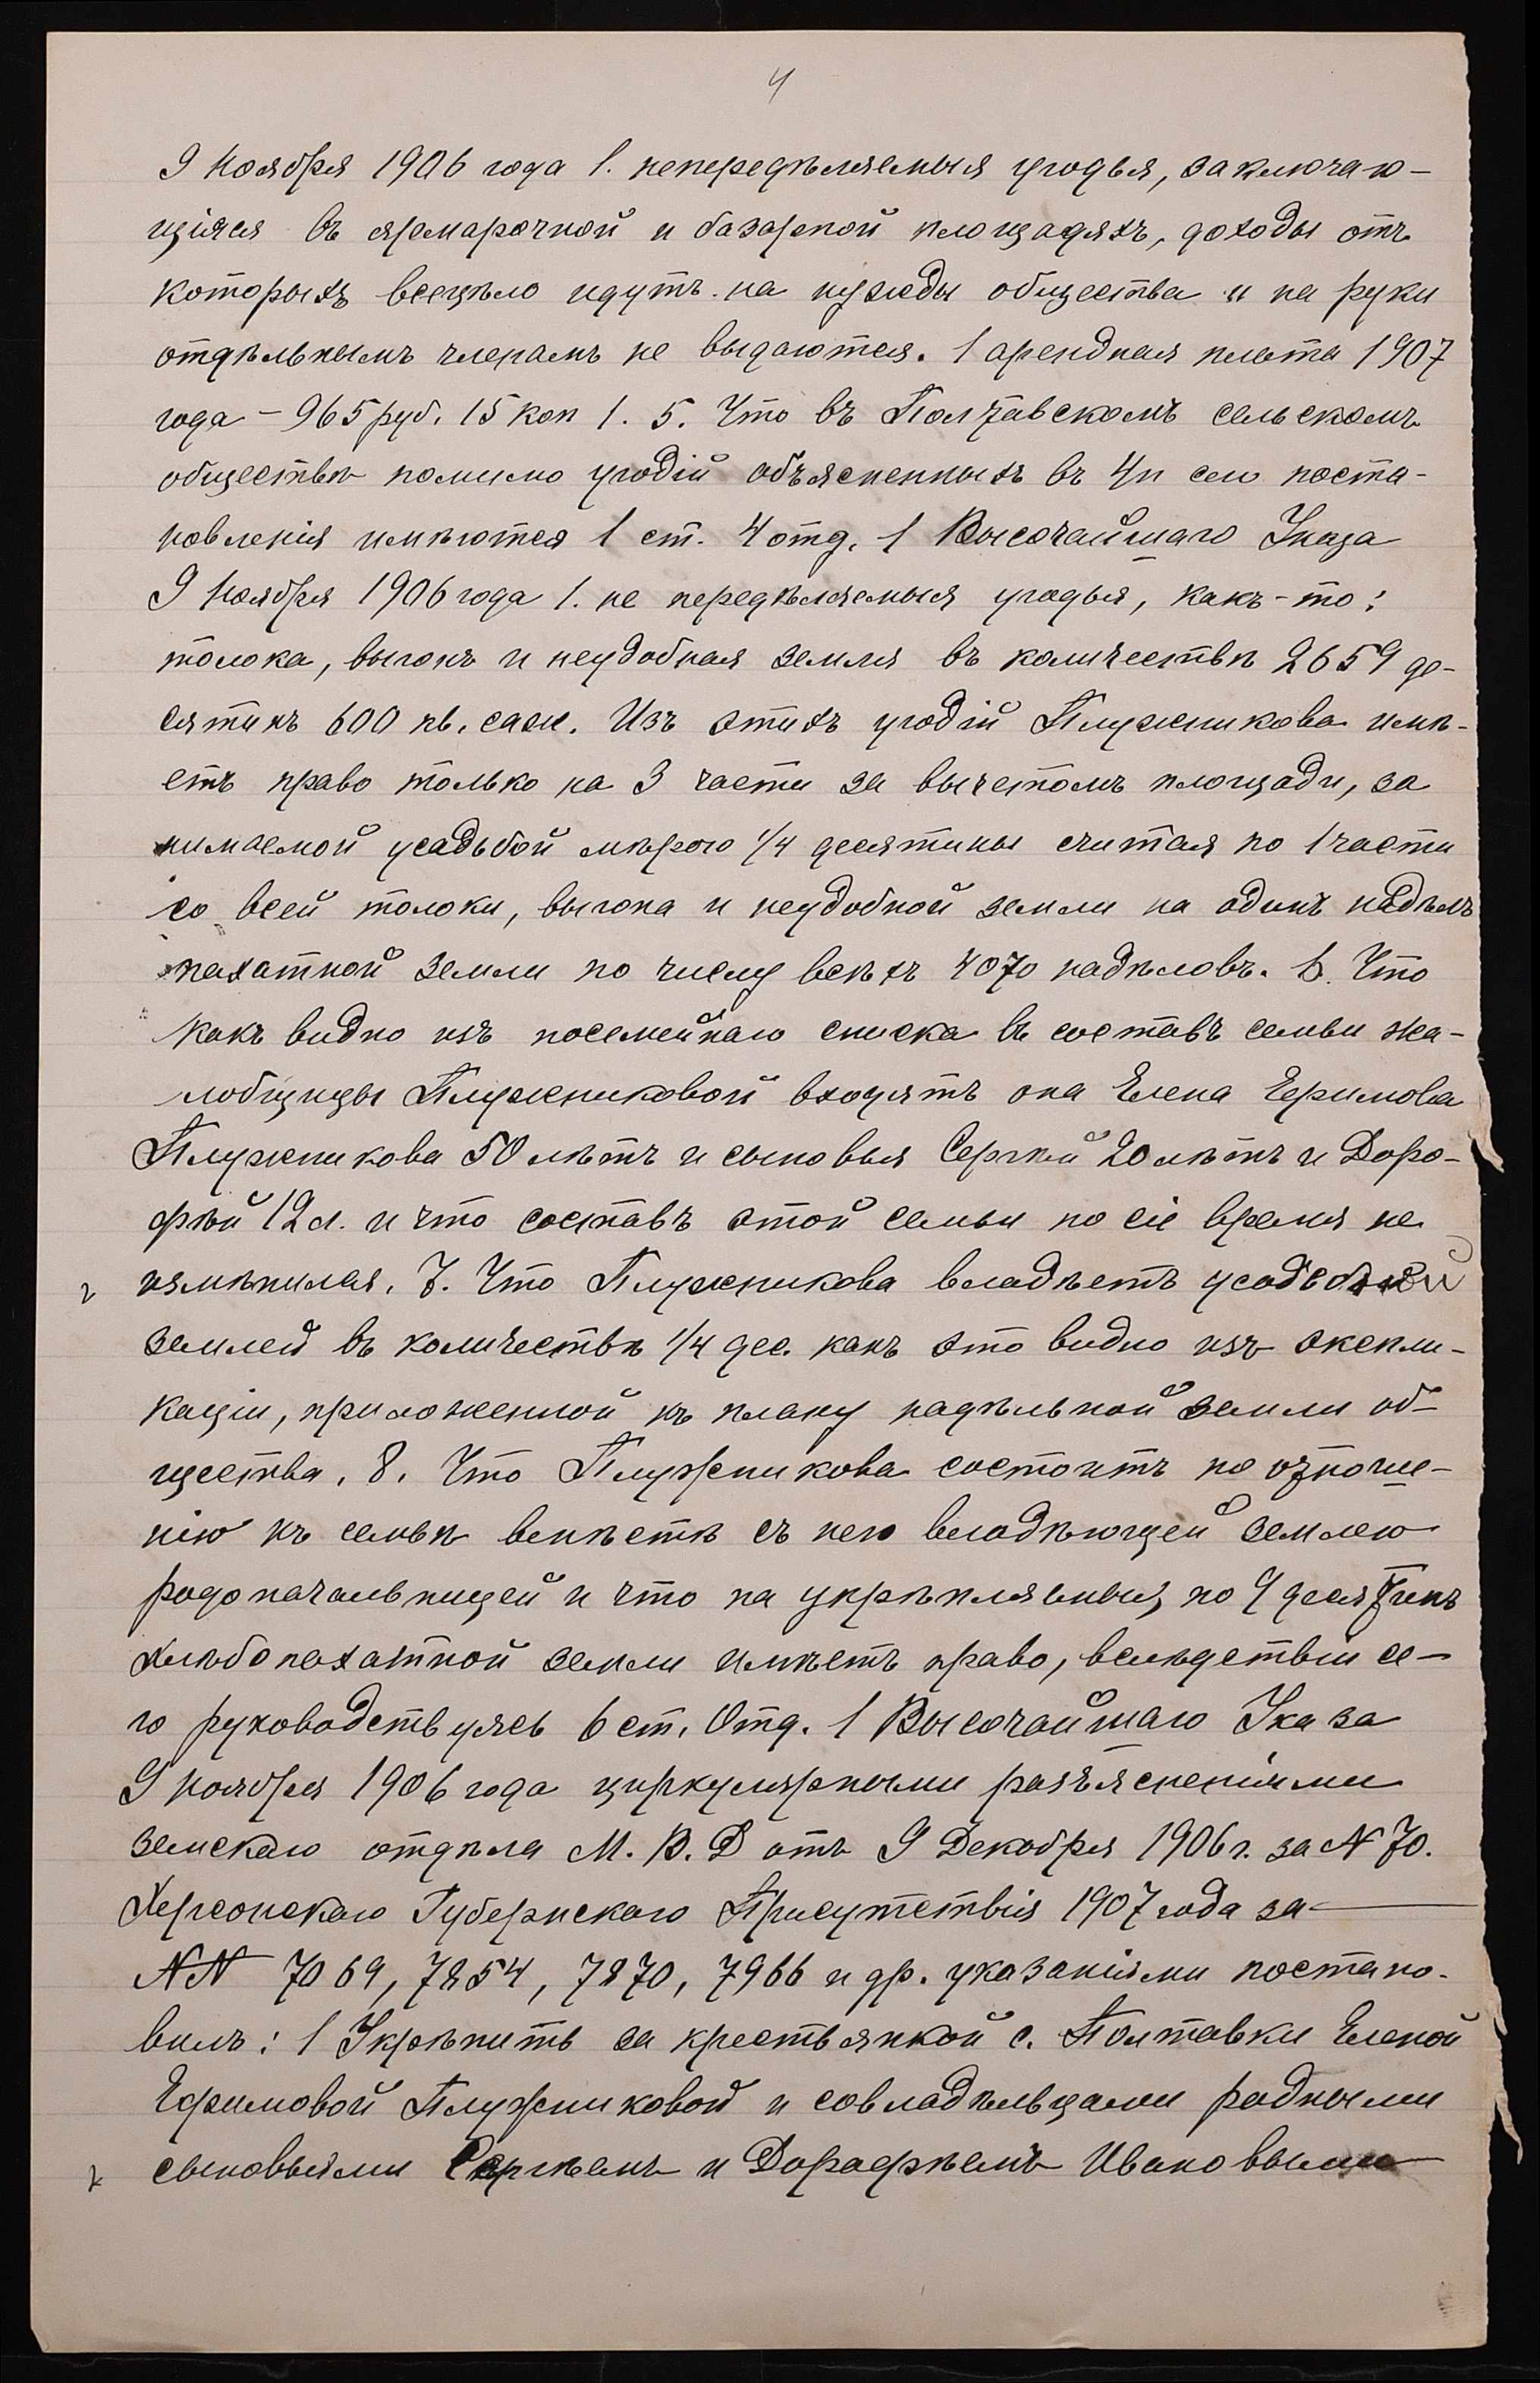 4
9 Ноября 1906 года /. непередѣляемыя угодья, заключаю-
щіяся въ ярмарочной и базарной площадяхъ, доходы отъ
которыхъ всецѣло идутъ на нужды общества и на руки
отдѣльнымъ членамъ не выдаются. / арендная плата 1907
года - 965 руб. 15 коп /. 5. Что въ Полтавскомъ сельскомъ
обществѣ помимо угодій объясненныхъ въ 4 п сего поста-
новленія имѣются / ст. 4 отд. 1 Высочайшаго Указа
9 Ноября 1906 года /. не передѣляемыя угодья, какъ-то:
толока, выгонъ и неудобная земля въ количествѣ 2659 де-
сятинъ 600 кв. саж. Изъ этихъ угодій Плужникова имѣ-
етъ право только на 3 части за вычетомъ площади, за
нимаемой усадьбой мѣрою 1/4 десятины считая по 1 части
со всей толоки, выгона и неудобной земли на одинъ надѣлъ
пахатной земли по числу всѣхъ 4070 надѣловъ. 6. Что
какъ видно изъ посемейнаго списка въ составъ семьи жа-
лобщицы Плужниковой входятъ она Елена Ефимова
Плужникова 50 лѣтъ и сыновья Сергѣй 20 лѣтъ и Доро-
фѣй 12 л. и что составъ этой семьи по сіе время не
измѣнился. 7. Что Плужникова владѣетъ усадебной
землей въ количествѣ 1/4 дес. какъ это видно изъ экспли-
каціи, приложенной къ плану надѣльной земли об-
щества. 8. Что Плужникова состоитъ по отноше-
нію къ семьѣ вмѣстѣ съ нею владѣющей землею
родоначальницей и что на укрѣпляемыя по 9 десятинъ
хлѣбопахатной земли имѣетъ право, вслѣдствіи се-
го руководствуясь 6 ст. Отд. 1 Высочайшаго Указа
9 ноября 1906 года циркулярными разъясненіями
земскаго отдѣла М. В. Д отъ 9 Декабря 1906 г. за № 70.
Херсонскаго Губернскаго Присутствія 1907 года за
№№ 7069, 7854, 7870, 7966 и др. указаніями постано-
вилъ: 1 Укрѣпить за крестьянкой с. Полтавки Еленой
Ефимовой Плужниковой и совладѣльцами родными
сыновьями Сергѣемъ и Дорофѣемъ Ивановыми